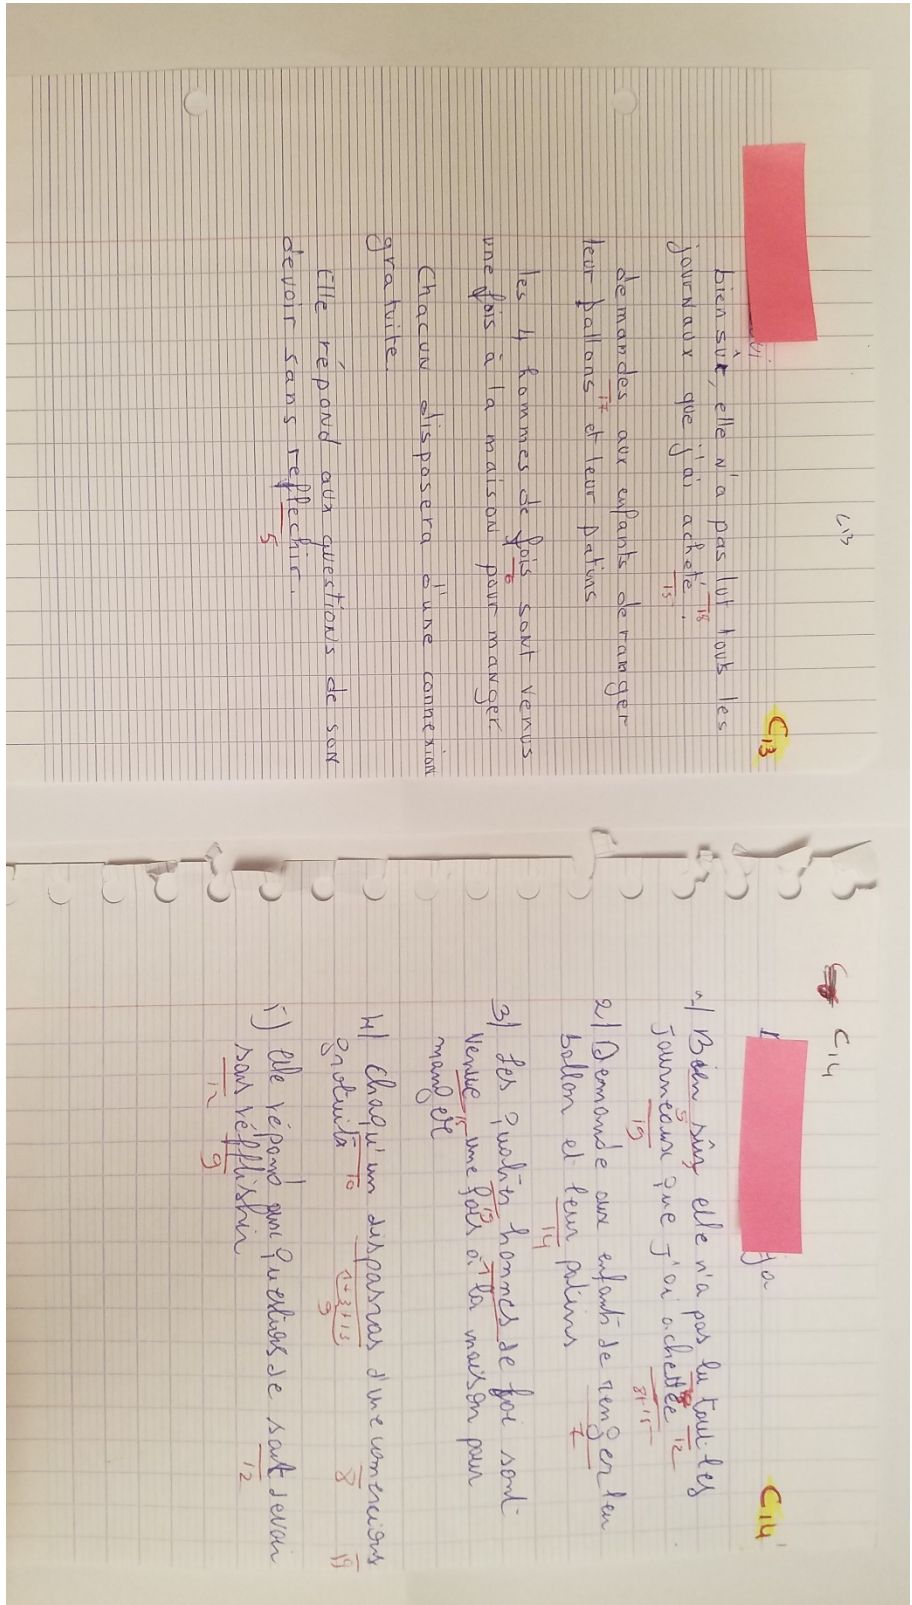 C13
C13
bien sûr, elle n'a pas lut touts les
18
journaux que j'ai acheté.
15
demandes aux enfants de ranger
17
leur ballons et leur patins
les 4 hommes de fois sont venus
6
une fois à la maison pour manger
Chacun disposera d'une connexion
gratuite.
Elle répond aux questions de son
devoir sans reflechir.
5
C14
C14
ja
1/ Bien sûr, elle n'a pas lu tout les
5 12
Journeaux que j'ai achettée
19 8+15
2/ Demande aux enfant de renger leu
7
ballon et leur patins
14
3/ Les quatres hommes de foi sont
19
venue une fois à la maison pour
15
mangere
4/ Chaqu'un dispasras d'une
8 19
gratuita
10
5) Elle répond aux questions de sait devoir
12
sans réfflishir
12 9